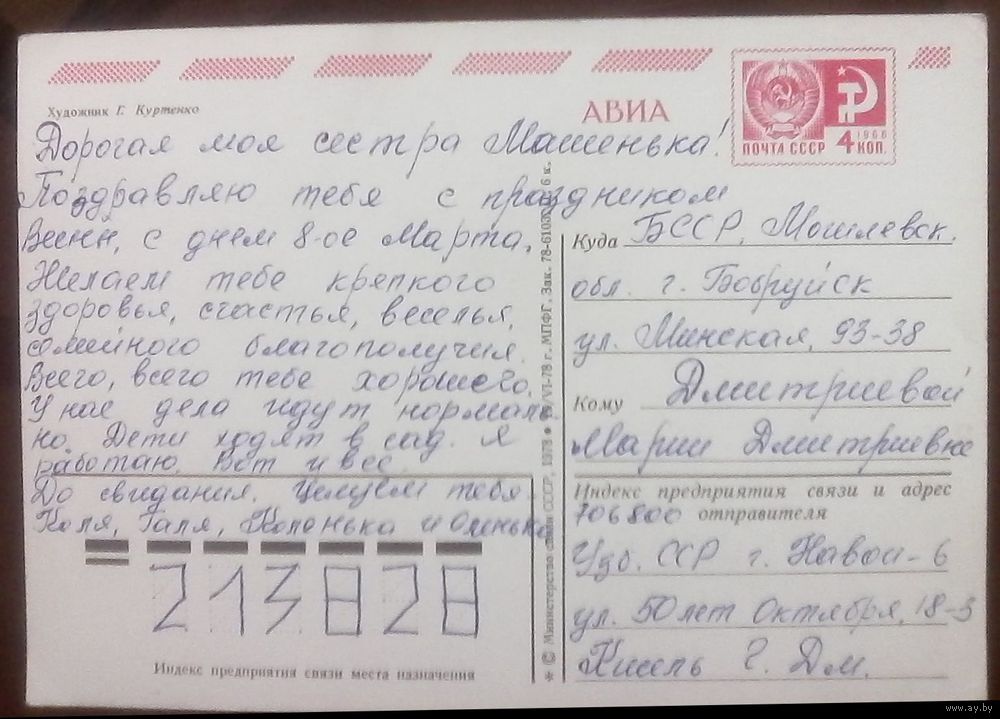 Художник Г. Куртенко
АВИА
1966
ПОЧТА СССР 4 КОП.
Дорогая моя сестра Машенька!
Поздравляю тебя с праздником
Весны, с днем 8-ое Марта.
Желаем тебе крепкого
здоровья, счастья, веселья,
семейного благополучия.
Всего, всего тебе хорошего.
У нас дела идут нормаль
но. Дети ходят в сад. Я
работаю. Вот и все.
До свидания. Целуем тебя
Коля, Галя, Коленька и Оленька
213828
Индекс предприятия связи места назначения
* © Министерство связи СССР, 1978 ● /VI-78 г. МПФГ. Зак. 78-6103 6 к.
Куда БССР, Могилевск.
обл. г. Бобруйск
ул. Минская, 93-38
Кому Дмитриевой
Марии Дмитриевне
Индекс предприятия связи и адрес
706800 отправителя
Узб. ССР г. Навои-6
ул. 50 лет Октября, 18-5
Кисель Г. Дм.
www.ay.by